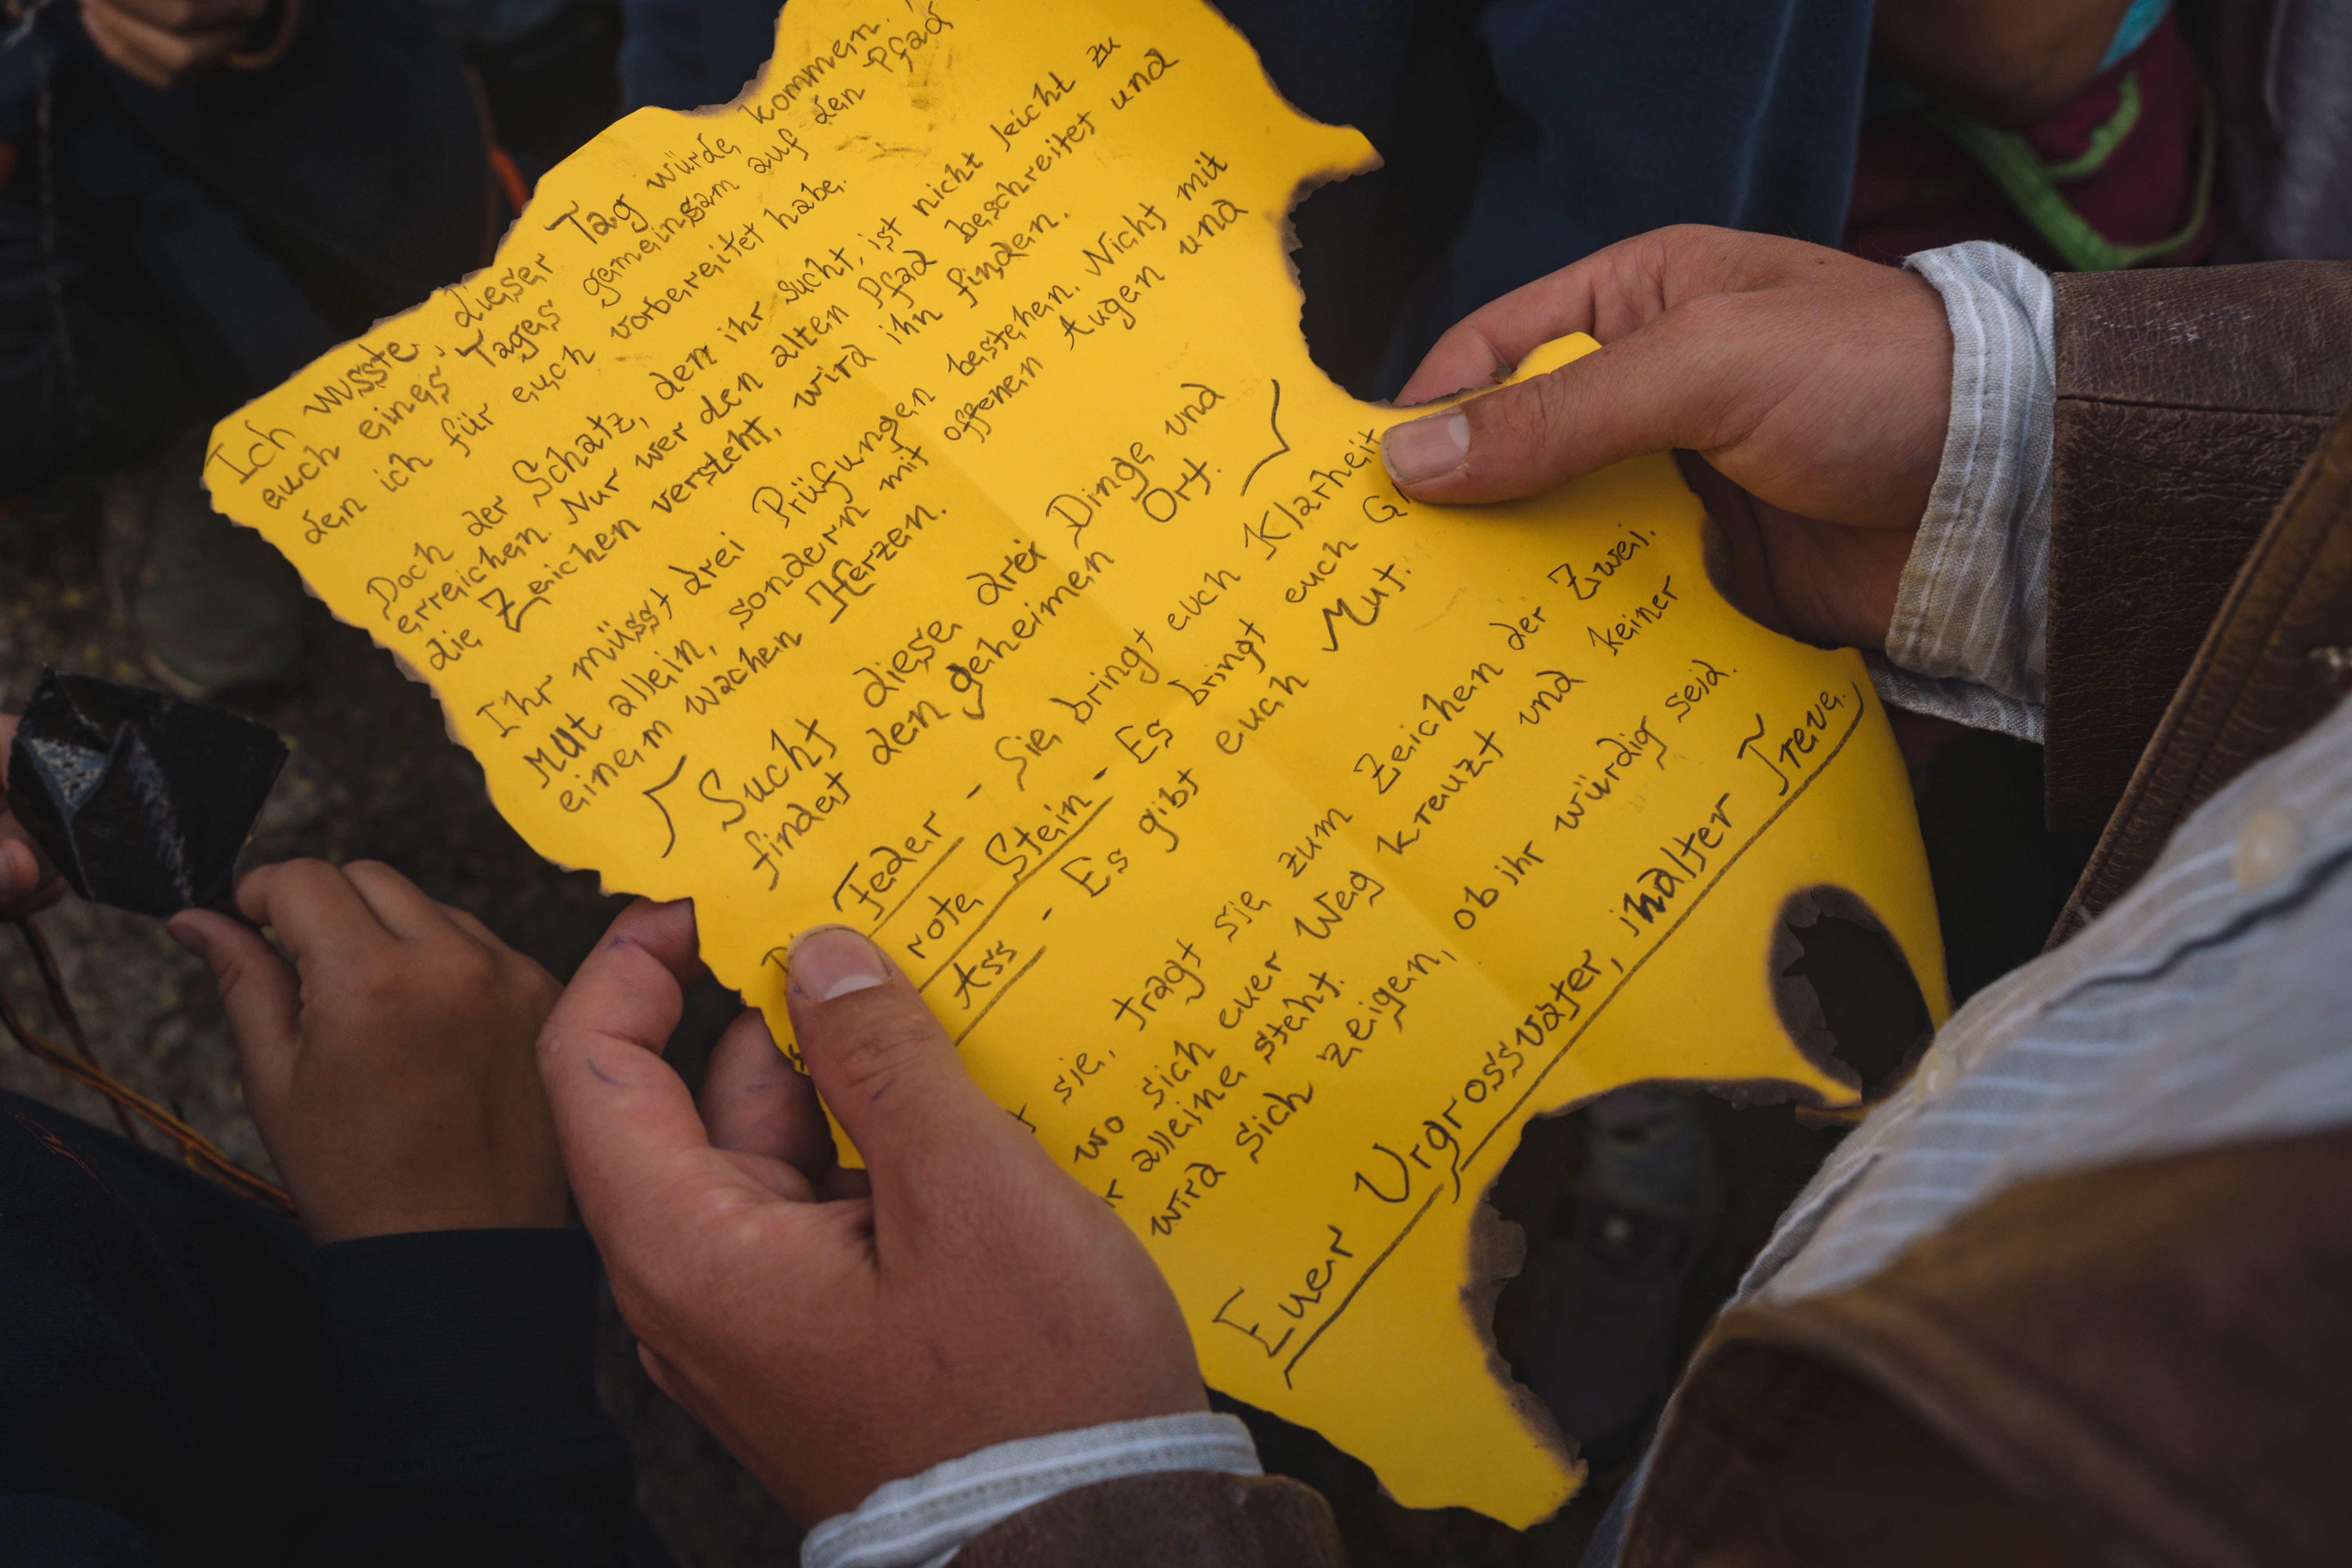 Ich wusste, dieser Tag würde kommen.
euch eines Tages gemeinsam auf den Pfad
den ich für euch vorbereitet habe.
Doch der Schatz, den ihr sucht, ist nicht leicht zu
erreichen. Nur wer den alten Pfad beschreitet und
die Zeichen versteht, wird ihn finden.
Ihr müsst drei Prüfungen bestehen. Nicht mit
Mut allein, sondern mit offenen Augen und
einem wachen Herzen.
Sucht diese drei Dinge und
findet den geheimen Ort.
Feder - Sie bringt euch Klarheit
rote Stein - Es bringt euch
Ass - Es gibt euch Mut.
sie, tragt sie zum Zeichen der Zwei.
wo sich euer Weg kreuzt und keiner
alleine steht.
wird sich zeigen, ob ihr würdig seid.
Euer Urgrossvater, in alter Treue.